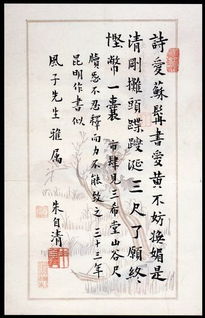 詩愛蘇髯書愛黃不妨嫵媚是
清剛攤頭蹀躞涎三尺了願終
慳幣一囊
市肆見三希堂山谷尺
牘愛不忍釋而力不能致之三十三年
昆明作書似
風子先生雅屬
朱自清